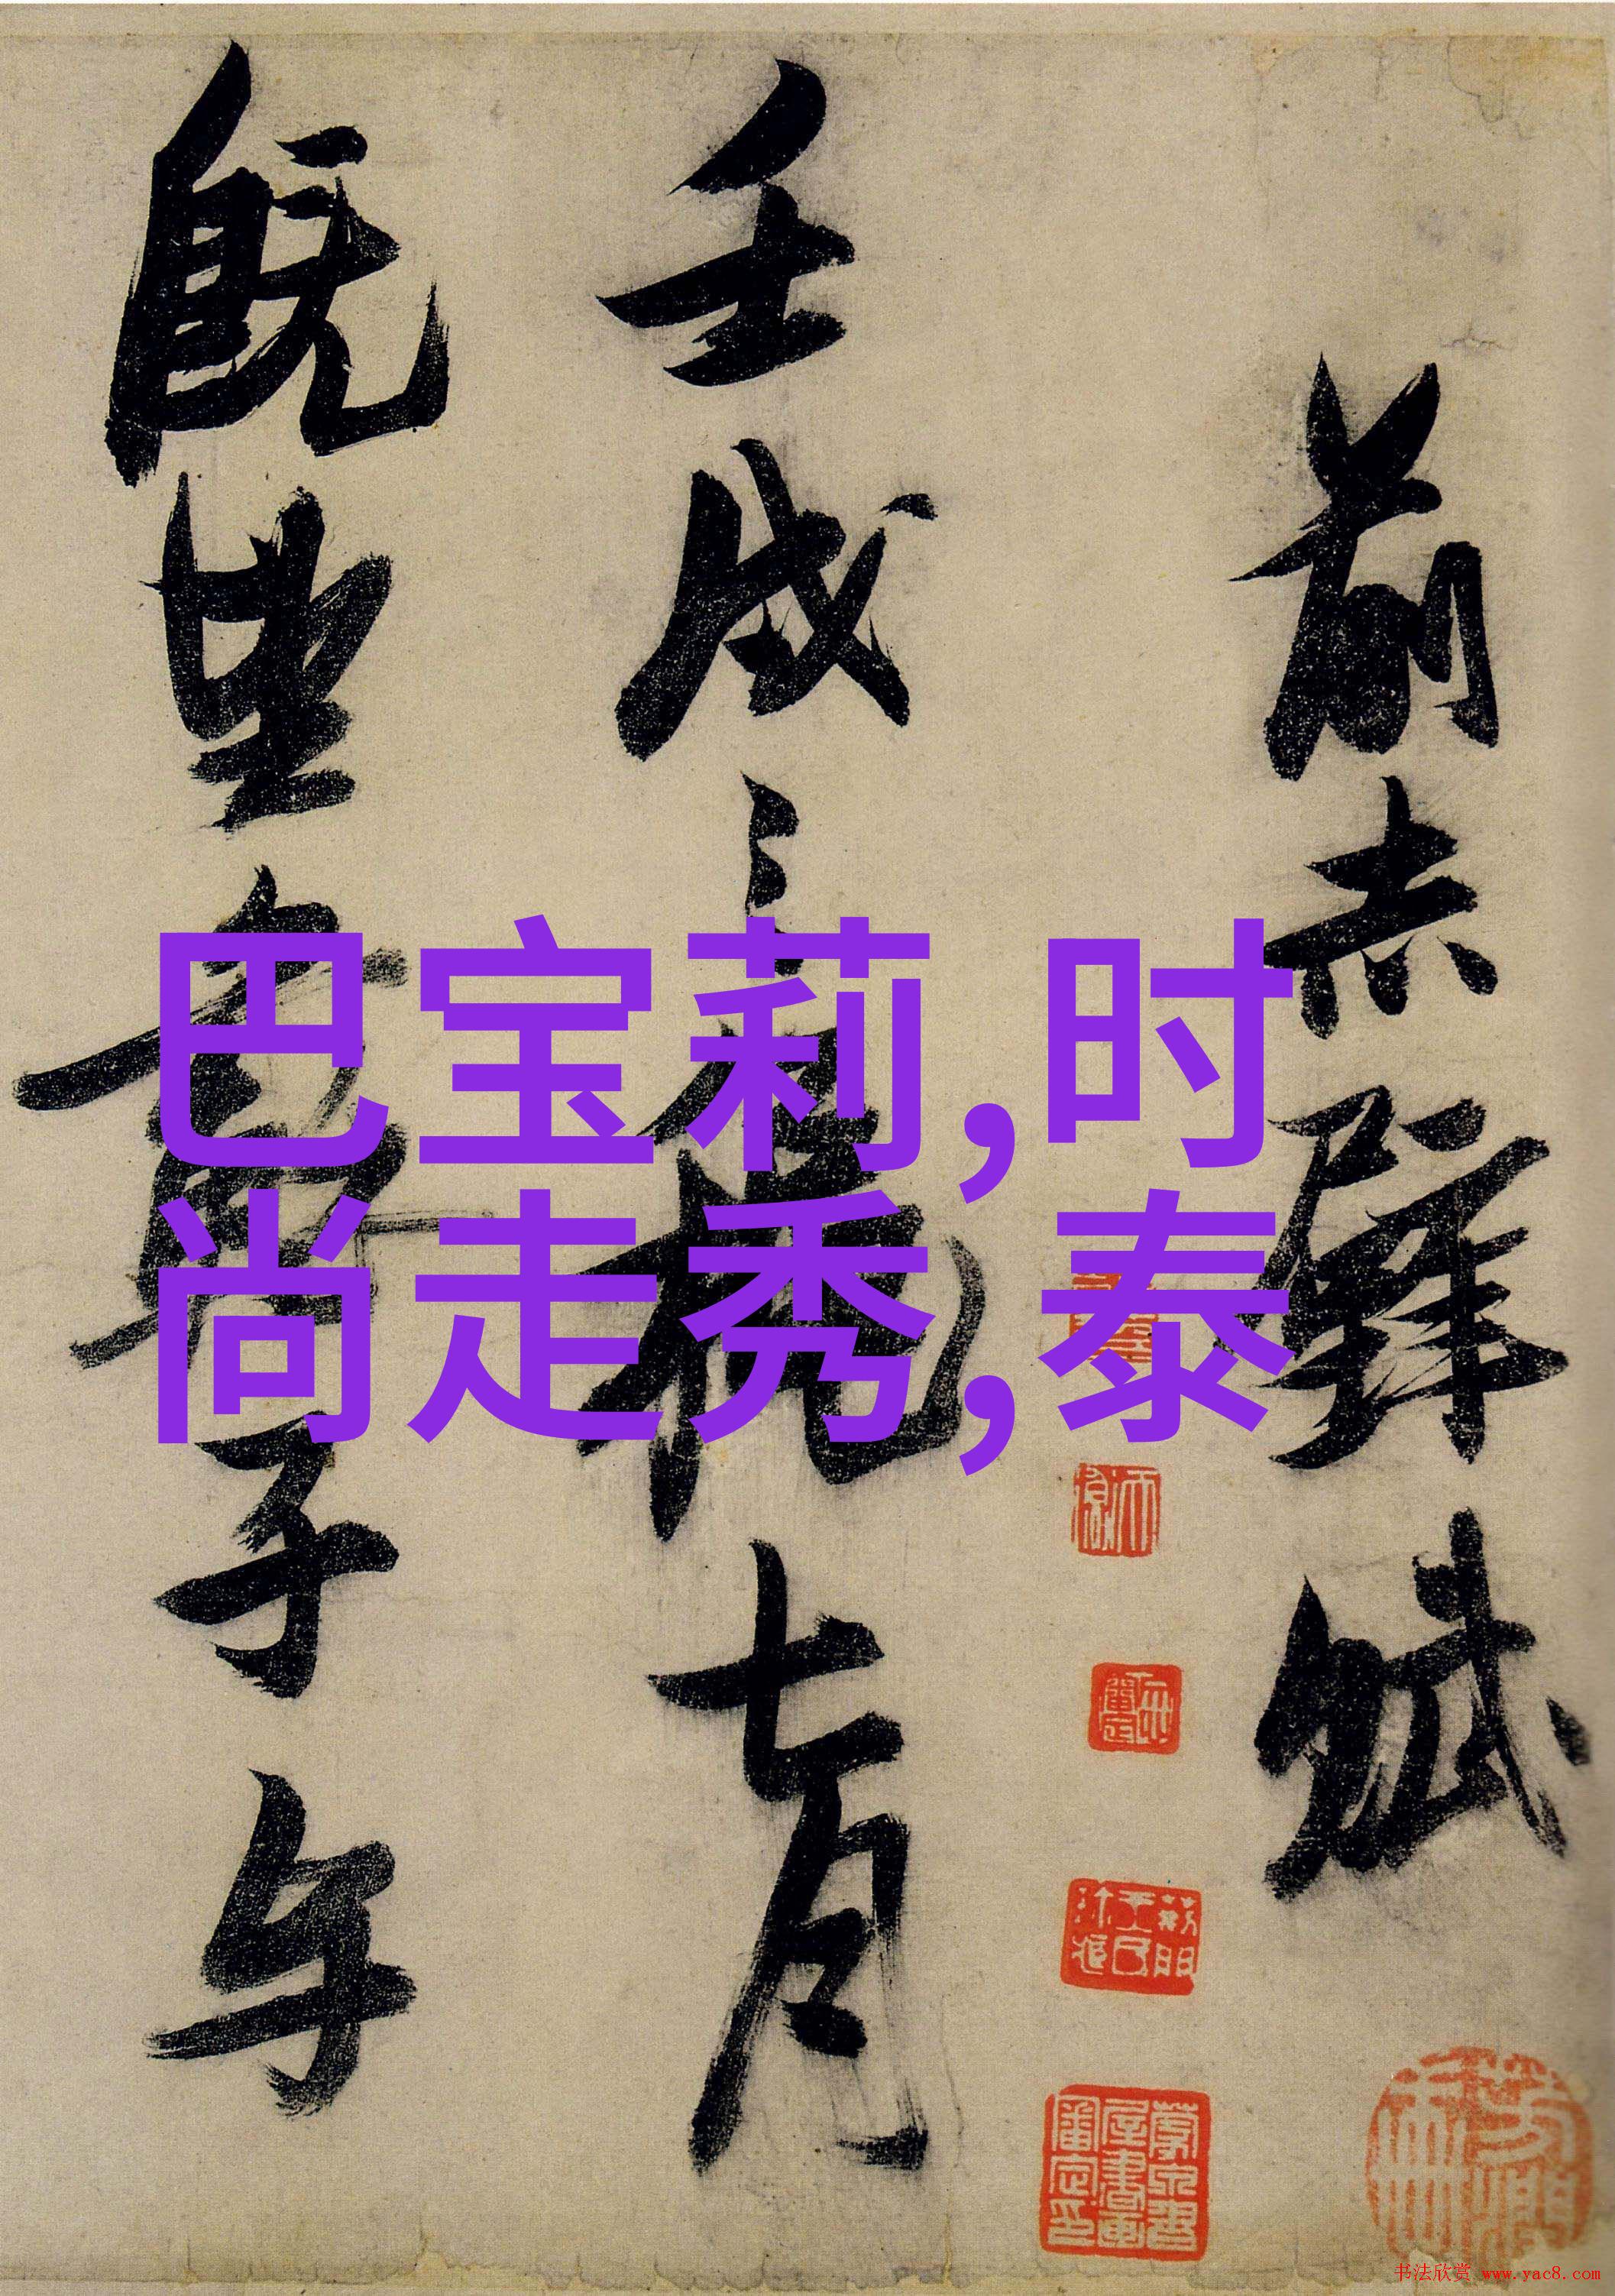 前赤壁賦
壬戌之七月
既望子与
巴宝莉,时
尚走秀,泰
书法欣赏 www.yac8.com